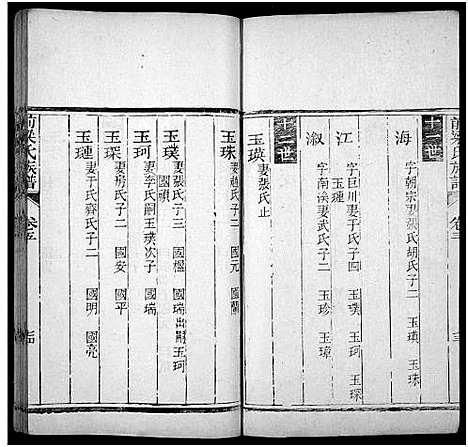 十二世
海
字朝宗妻張氏胡氏子二 玉瑛 玉珠
江
字巨川妻于氏子四 玉璞 玉珂 玉琛
玉璉
淑
字南溪妻武氏子二 玉珍 玉璋
十三世
玉瑛 妻張氏止
玉珠
國元
玉璞
妻張氏子三 國楹 國瑞出嗣玉珂
國禎
玉珂
妻李氏嗣玉璞次子 國瑞
玉琛
國安 國平
玉璉
妻于氏齊氏子二 國明 國亮
梁氏族譜 卷